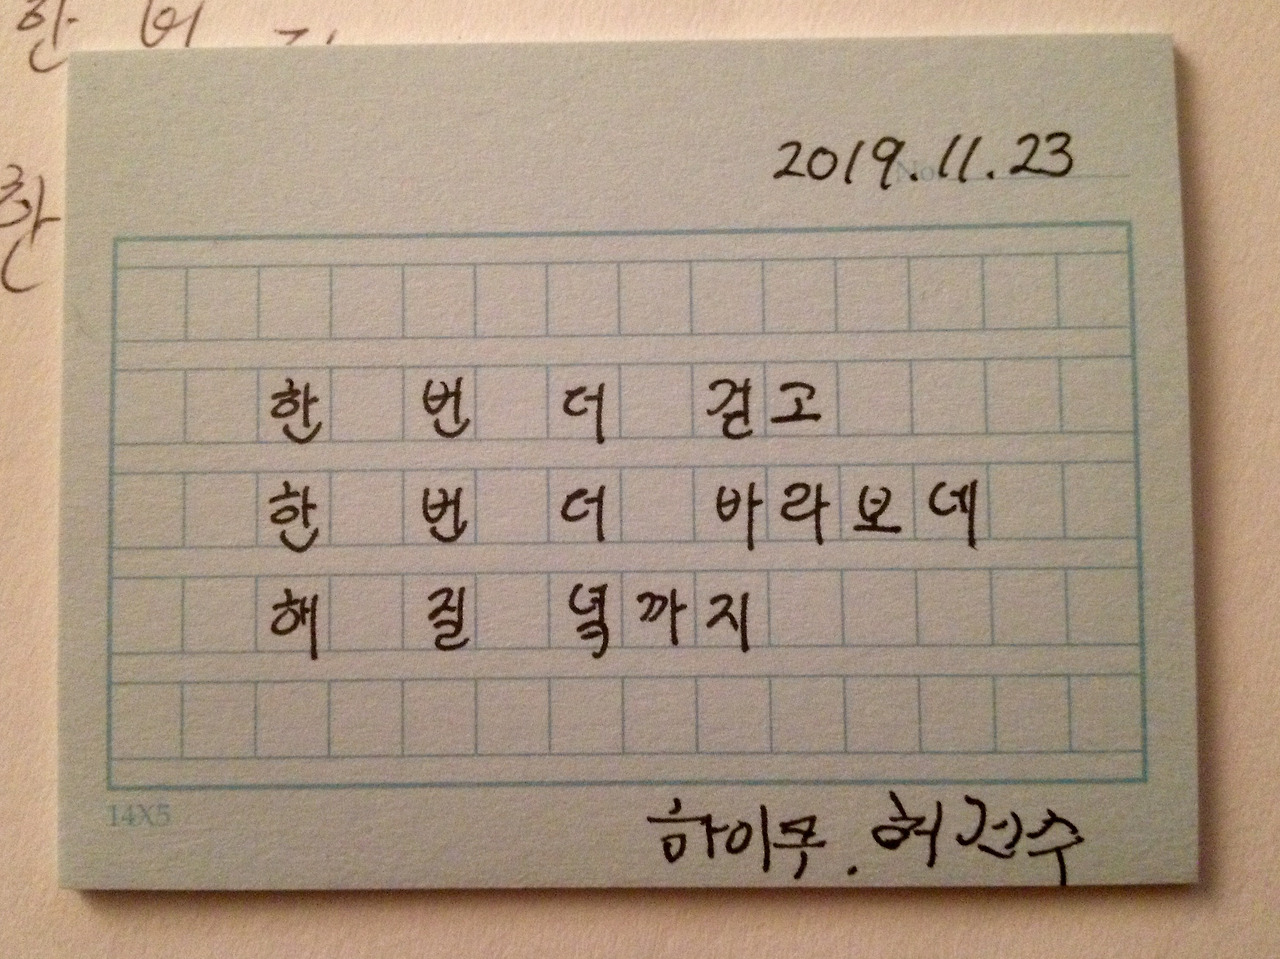 한 버
한
2019.11.23
No
한 번 더 걷고
한 번 더 바라보네
해 질 녘까지
14X5
하이쿠. 허건수